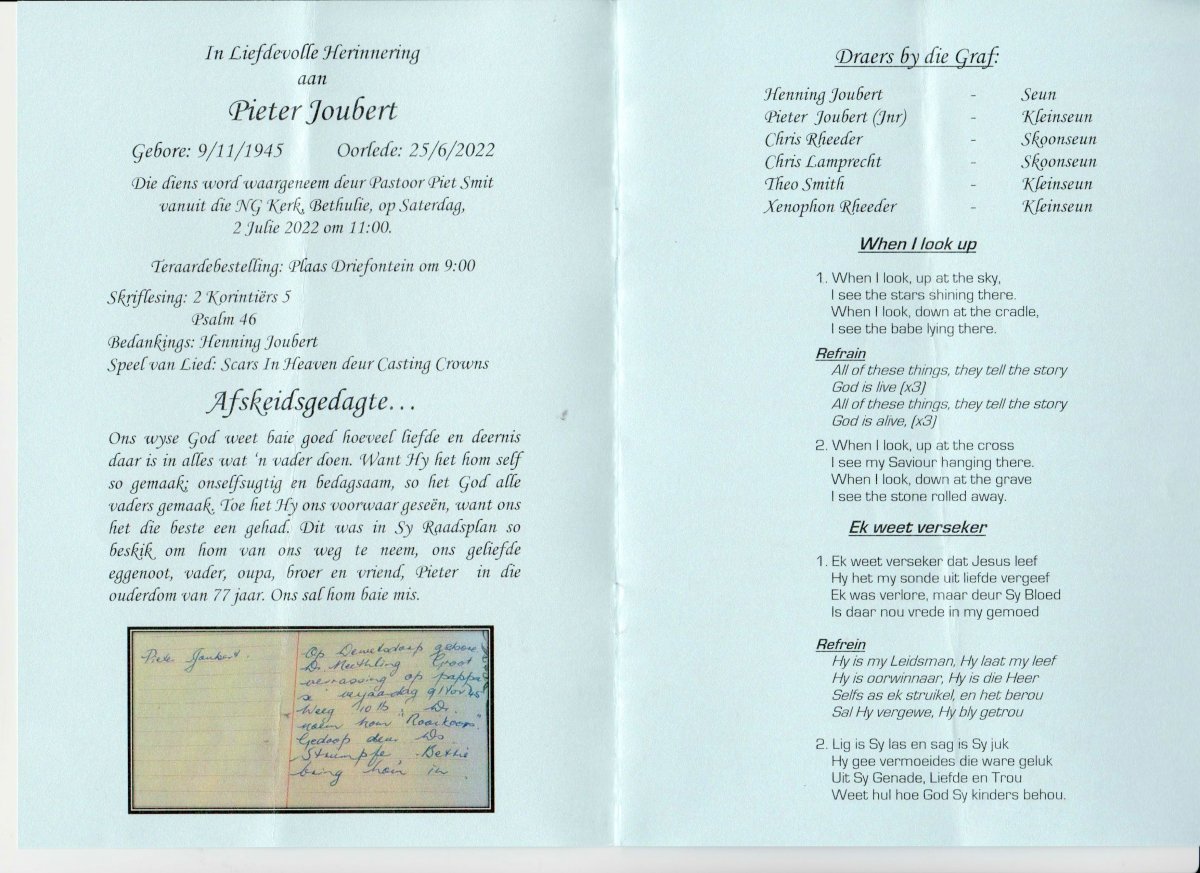 In Liefdevolle Herinnering
aan
Pieter Joubert
Gebore: 9/11/1945 Oorlede: 25/6/2022
Die diens word waargeneem deur Pastoor Piet Smit
vanuit die NG Kerk, Bethulie, op Saterdag,
2 Julie 2022 om 11:00.
Teraardebestelling: Plaas Driefontein om 9:00
Skriflesing: 2 Korintiërs 5
Psalm 46
Bedankings: Henning Joubert
Speel van Lied: Scars In Heaven deur Casting Crowns
Afskeidsgedagte...
Ons wyse God weet baie goed hoeveel liefde en deernis
daar is in alles wat 'n vader doen. Want Hy het hom self
so gemaak; onselfsugtig en bedagsaam, so het God alle
vaders gemaak. Toe het Hy ons voorwaar geseën, want ons
het die beste een gehad. Dit was in Sy Raadsplan so
beskik om hom van ons weg te neem, ons geliefde
eggenoot, vader, oupa, broer en vriend, Pieter in die
ouderdom van 77 jaar. Ons sal hom baie mis.
Pieter Joubert.
Op Dewetsdorp gebore
Dr. Groot
verrassing op pappa
se verjaardag 9 Nov 45
Weeg 10 lb. Dr.
noem hom
Gedoop deur Ds.
Strumpfe. Bettie
bring hom in.
Draers by die Graf:
Henning Joubert - Seun
Pieter Joubert (Jnr) - Kleinseun
Chris Rheeder - Skoonseun
Chris Lamprecht - Skoonseun
Theo Smith - Kleinseun
Xenophon Rheeder - Kleinseun
When I look up
1. When I look, up at the sky,
I see the stars shining there.
When I look, down at the cradle,
I see the babe lying there.
Refrain
All of these things, they tell the story
God is live (x3)
All of these things, they tell the story
God is alive, (x3)
2. When I look, up at the cross
I see my Saviour hanging there.
When I look, down at the grave
I see the stone rolled away.
Ek weet verseker
1. Ek weet verseker dat Jesus leef
Hy het my sonde uit liefde vergeef
Ek was verlore, maar deur Sy Bloed
Is daar nou vrede in my gemoed
Refrein
Hy is my Leidsman, Hy laat my leef
Hy is oorwinnaar, Hy is die Heer
Selfs as ek struikel, en het berou
Sal Hy vergewe, Hy bly getrou
2. Lig is Sy las en sag is Sy juk
Hy gee vermoeides die ware geluk
Uit Sy Genade, Liefde en Trou
Weet hul hoe God Sy kinders behou.